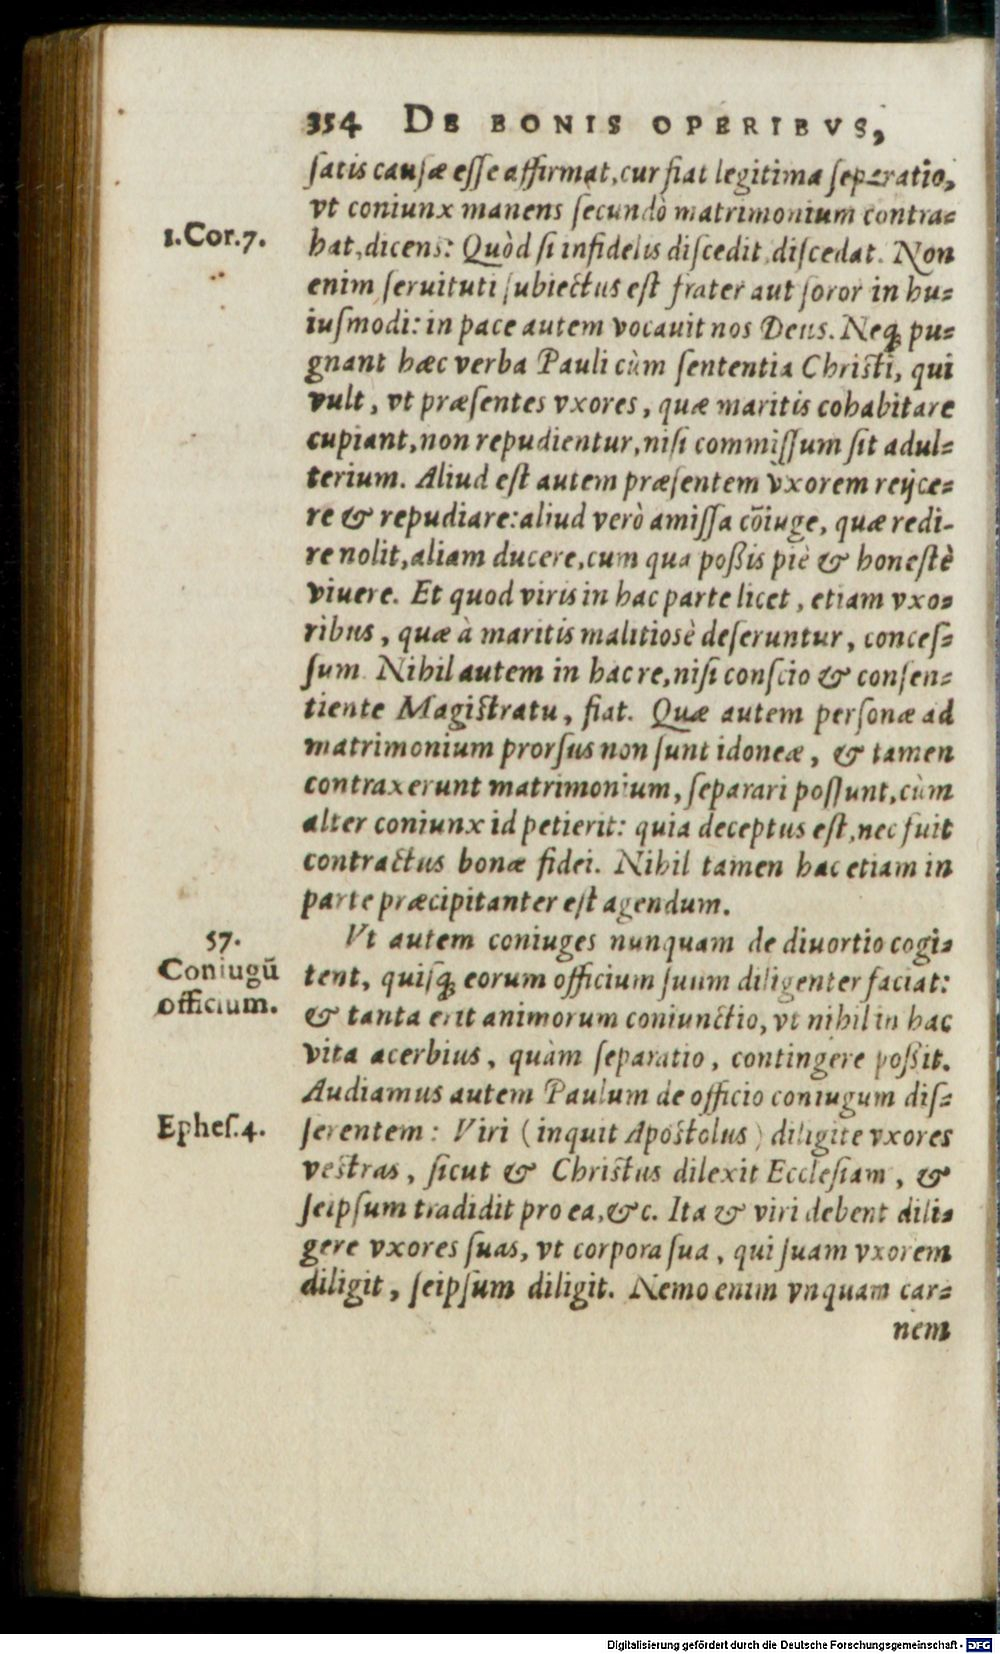 354 DE BONIS OPERIBVS,
ſatis cauſæ eſſe affirmat, cur fiat legitima ſeparatio,
vt coniunx manens ſecundò matrimonium contra=
1.Cor.7.
hat, dicens: Quòd ſi infidelis diſcedit, diſcedat. Non
enim ſeruituti ſubiectus eſt frater aut ſoror in hu=
iuſmodi: in pace autem vocauit nos Deus. Neq; pu=
gnant hæc verba Pauli cùm ſententia Chriſti, qui
vult, vt præſentes vxores, quæ maritis cohabitare
cupiant, non repudientur, niſi commiſſum ſit adul=
terium. Aliud eſt autem præſentem vxorem reijce=
re & repudiare: aliud verò amiſſa cõiuge, quæ redi-
re nolit, aliam ducere, cum qua poßis piè & honeſtè
viuere. Et quod viris in hac parte licet, etiam vxo=
ribus, quæ à maritis malitiosè deſeruntur, conceſ=
ſum. Nihil autem in hac re, niſi conſcio & conſen=
tiente Magiſtratu, fiat. Quæ autem perſonæ ad
matrimonium prorſus non ſunt idoneæ, & tamen
contraxerunt matrimonium, ſeparari poſſunt, cùm
alter coniunx id petierit: quia deceptus eſt, nec fuit
contractus bonæ fidei. Nihil tamen hac etiam in
parte præcipitanter eſt agendum.
57.
Coniugũ
officium.
Vt autem coniuges nunquam de diuortio cogi=
tent, quiſq; eorum officium ſuum diligenter faciat:
& tanta erit animorum coniunctio, vt nihil in hac
vita acerbius, quàm ſeparatio, contingere poßit.
Audiamus autem Paulum de officio coniugum diſ=
Epheſ.4.
ſerentem: Viri (inquit Apoſtolus) diligite vxores
veſtras, ſicut & Chriſtus dilexit Eccleſiam, &
ſeipſum tradidit pro ea, &c. Ita & viri debent dili=
gere vxores ſuas, vt corpora ſua, qui ſuam vxorem
diligit, ſeipſum diligit. Nemo enim vnquam car=
nem
Digitalisierung gefördert durch die Deutsche Forschungsgemeinschaft - DFG